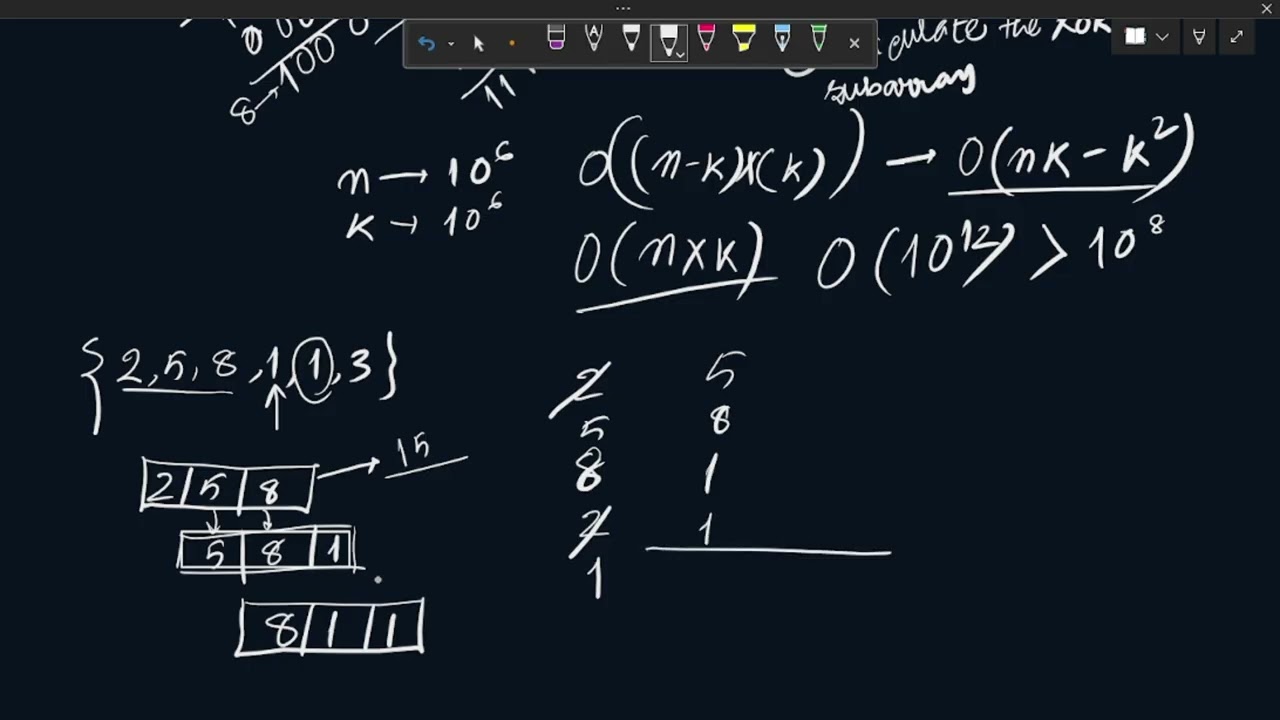 8→100
11
calculate the XOR
subarray
n → 10⁶
k → 10⁶
O((n-k)x(k)) → O(nk - k²)
O(nxk) O(10¹²) > 10⁸
{2,5,8,1,1,3}
2 5 8 → 15
5 8 1
8 1 1
2 5
5 8
8 1
2 1
1